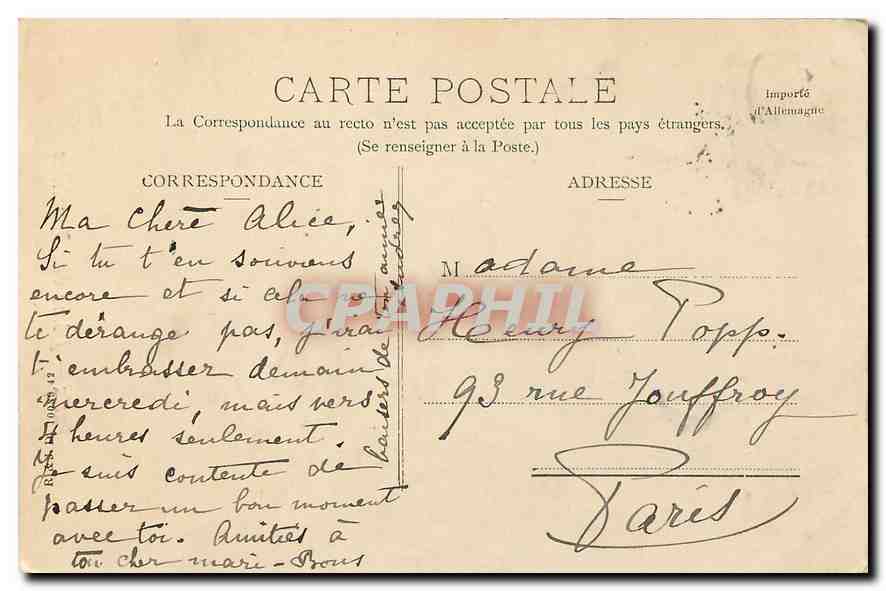 CARTE POSTALE
Importé
d'Allemagne
La Correspondance au recto n'est pas acceptée par tous les pays étrangers.
(Se renseigner à la Poste.)
CORRESPONDANCE
Ma chère Alice,
Si tu t'en souviens
encore et si cela ne
te dérange pas, j'irai
t'embrasser demain
mercredi, mais vers
4 heures seulement.
Je suis contente de
passer un bon moment
avec toi. Amitiés à
ton cher mari - Bons
baisers de ton amie
ADRESSE
Madame
Henry Popp.
93 rue Jouffroy
Paris
CPAPHIL